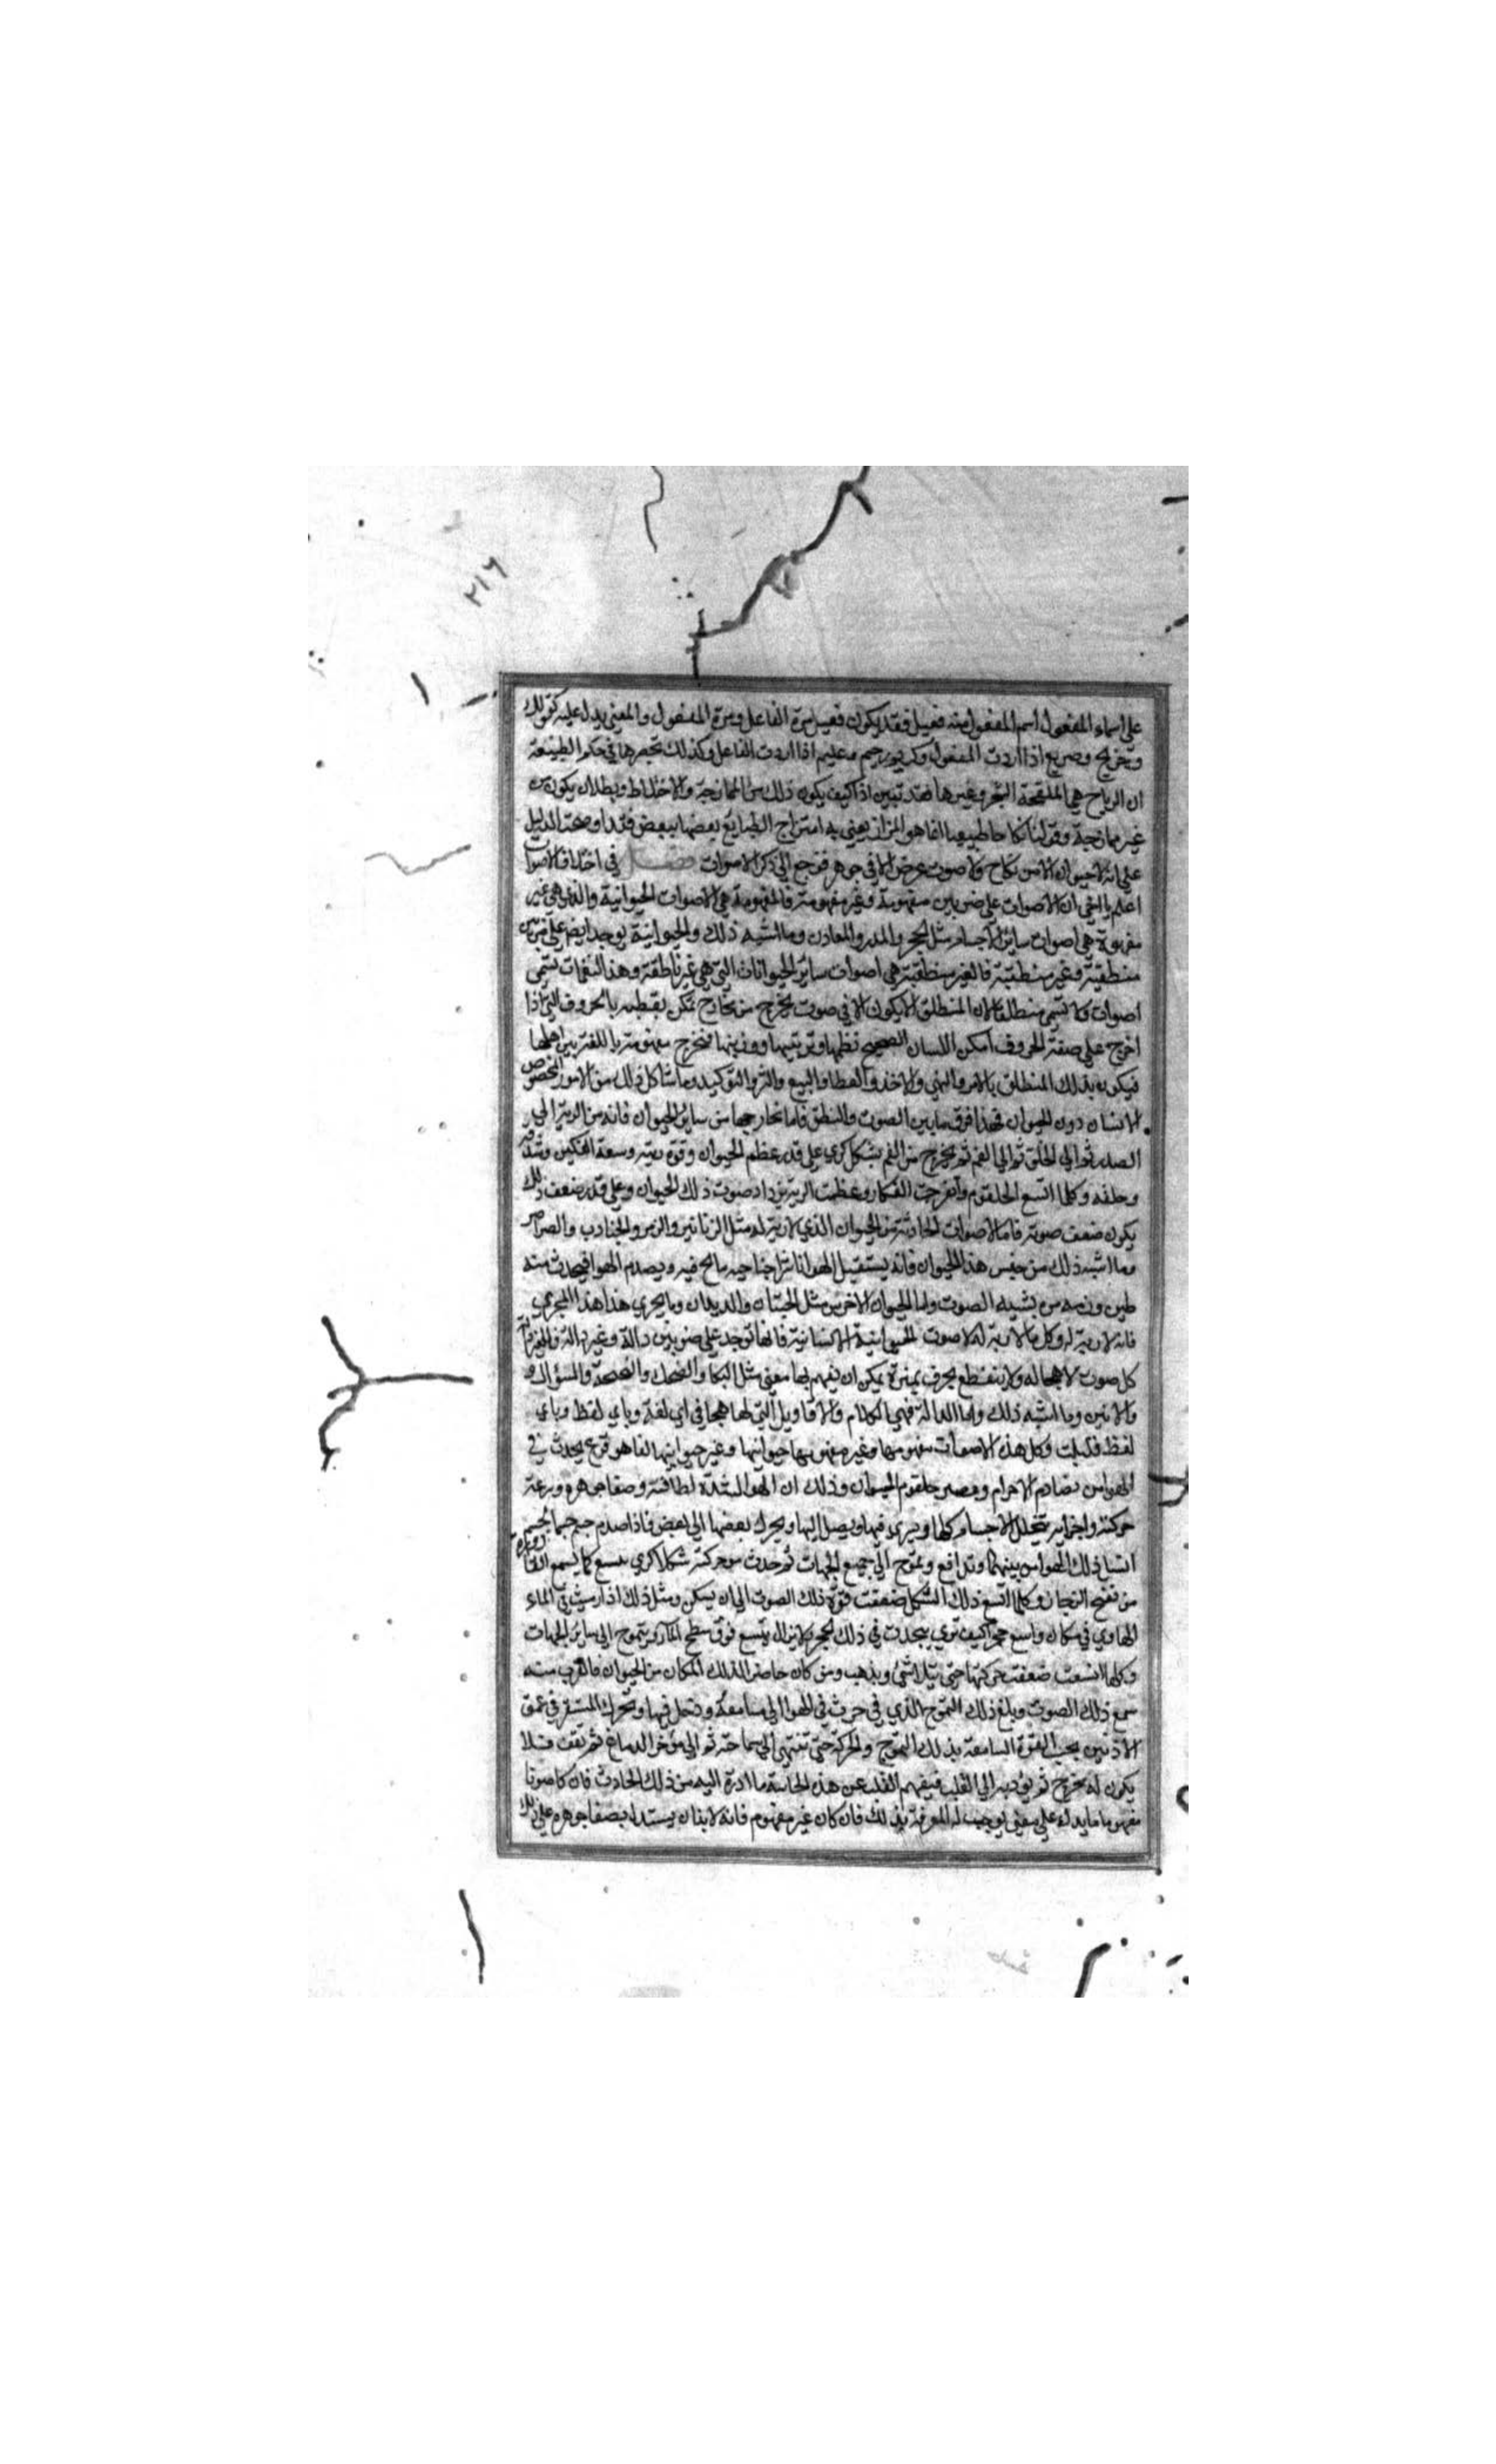 ٢١٦
على اسماء المفعول اسم المفعول منه فعيل فقد يكون فعيل مرة الفاعل ومرة المفعول والمعنى يدل عليه كقولك
وجريح وصريع اذا اردت المفعول وكريم ورحيم وعليم اذا اردت الفاعل وكذلك تجرها في حكم الطبيعة
ان الرياح هي الملقحة الشجر وغيرها فقد تبين اذا كيف يكون ذلك من الممازجة والاختلاط وبطلان يكون من
غير ممازجة وقولنا نكاحا طبيعيا انما هو المزاز يعني به امتزاج الطبايع بعضها ببعض فقد اوضحت الدليل
على انه لا حيوان الا من نكاح ولا صوت عرض الا في جوهر فنرجع الى ذكر الاصوات فصل في اختلاف الاصوات
اعلم يا اخي ان الاصوات على ضربين مفهومة وغير مفهومة فالمفهومة هي الاصوات الحيوانية والذي هي غير
مفهومة هي اصوات ساير الاجسام مثل الحجر والمدر والمعادن وما اشبه ذلك والحيوانية يوجد ايضا على ضربين
منطقية وغير منطقية فالغير منطقية هي اصوات ساير الحيوانات التي هي غير ناطقة وهذا النغمات تسمى
اصوات ولا تسمى منطلقا لان المنطلق لا يكون الا في صوت يخرج من مخارج تمكن بقطيعه بالحروف التي اذا
اخرج على صفة الحروف امكن اللسان الصحيح نظمها وترتيبها ووزنها فتخرج مفهومة باللغة بين اهلها
فيكون بذلك المنطلق بالامر والنهي والاخذ والعطا والبيع والشر والتوكيد وما شاكل ذلك من الامور المخصوص
الانسان دون الحيوان فهذا فرق ما بين الصوت والنطق فاما مخارجها من ساير الحيوان فانه من الرية الى
الصدر ثم الى الحلق ثم الى الفم ثم يخرج من الفم بشكل كري على قدر عظم الحيوان وقوة ريته وسعة الفكين وشدقه
وحلقه وكلما اتسع الحلقوم وانفرجت الفكان وعظمت الرية يزداد صوت ذلك الحيوان وعلى قدر ضعف ذلك
يكون ضعف صوته فاما الاصوات الحادثة من الحيوان الذي لا رية له مثل الزنانير والزمر والجنادب والصراصر
وما اشبه ذلك من جنس هذا الحيوان فانه يستقبل الهوا ناشرا جناحيه مانح فيه ويصدم الهوا فيحدث منه
طنين ورنه من تشبه الصوت واما الحيوان الاخرس مثل الحيتان والديدان وما يجري هذا هذا المجرى
فانه لا رية له وكل ما لا رية له لا صوت الحيوانية الانسانية فانها توجد على ضربين دالة وغير دالة فالغير دالة
كل صوت لا هجا له ولا ينقطع بحرف يميزه يمكن ان يفهم بها معنى مثل البكا والضحك والنحنحة والسؤال و
والانين وما اشبه ذلك واما الدالة فهي الكلام والاقاويل التي لها هجا في اي لغة وباي لفظ وباي
لفظ قبلت وكل هذه الاصوات مفهومها وغير مفهومها حيوانيها وغير حيوانيها انما هو قرع يحدث في
الهوا من تصادم الاجرام وعصر حلقوم الحيوان وذلك ان الهوا لشدة لطافته وصفا جوهره وسرعة
حركة اجزايه يتخلل الاجسام كلها ويسري فيها ويصل اليها ويحرك بعضها الى بعض فاذا صدم جسم جسما
انسل ذلك الهوا من بينهما وتدافع وتموج الى جميع الجهات ثم حدث من حركته شكلا كري متسع كما تتسع القارورة
من نفخ الزجاج وكلما اتسع ذلك الشكل ضعفت قوة ذلك الصوت الى ان يسكن ومثل ذلك اذا رميت في الماء
الهاوي في مكان واسع حجرا كيف ترى يحدث في ذلك الحجر لا يزال يتسع فوق سطح الماء ويتموج الى ساير الجهات
وكلما اتسعت ضعفت حركتها حتى يتلاشى ويذهب ومن كان حاضرا لذلك المكان من الحيوان فالقرب منه
سمع ذلك الصوت وبلغ ذلك التموج الذي في حرث في الهوا الى مسامعه ودخل فيها وتحرك المستقر في عمق
الاذنين بحسب القوة السامعة بذلك التموج والحركة حتى تنتهي الى صماخه ثم الى مؤخر الدماغ ثم يقف فلا
يكون له مخرج ثم يؤديه الى القلب فيفهم القلب عن هذه الحاسة ما ادت اليه من ذلك الحادث فان كان صوتا
مفهوما ما يدل على معنى توجهت له المعرفة بذلك فان كان غير مفهوم فانه لا بد ان يستدل بصفا جوهره على ذلك